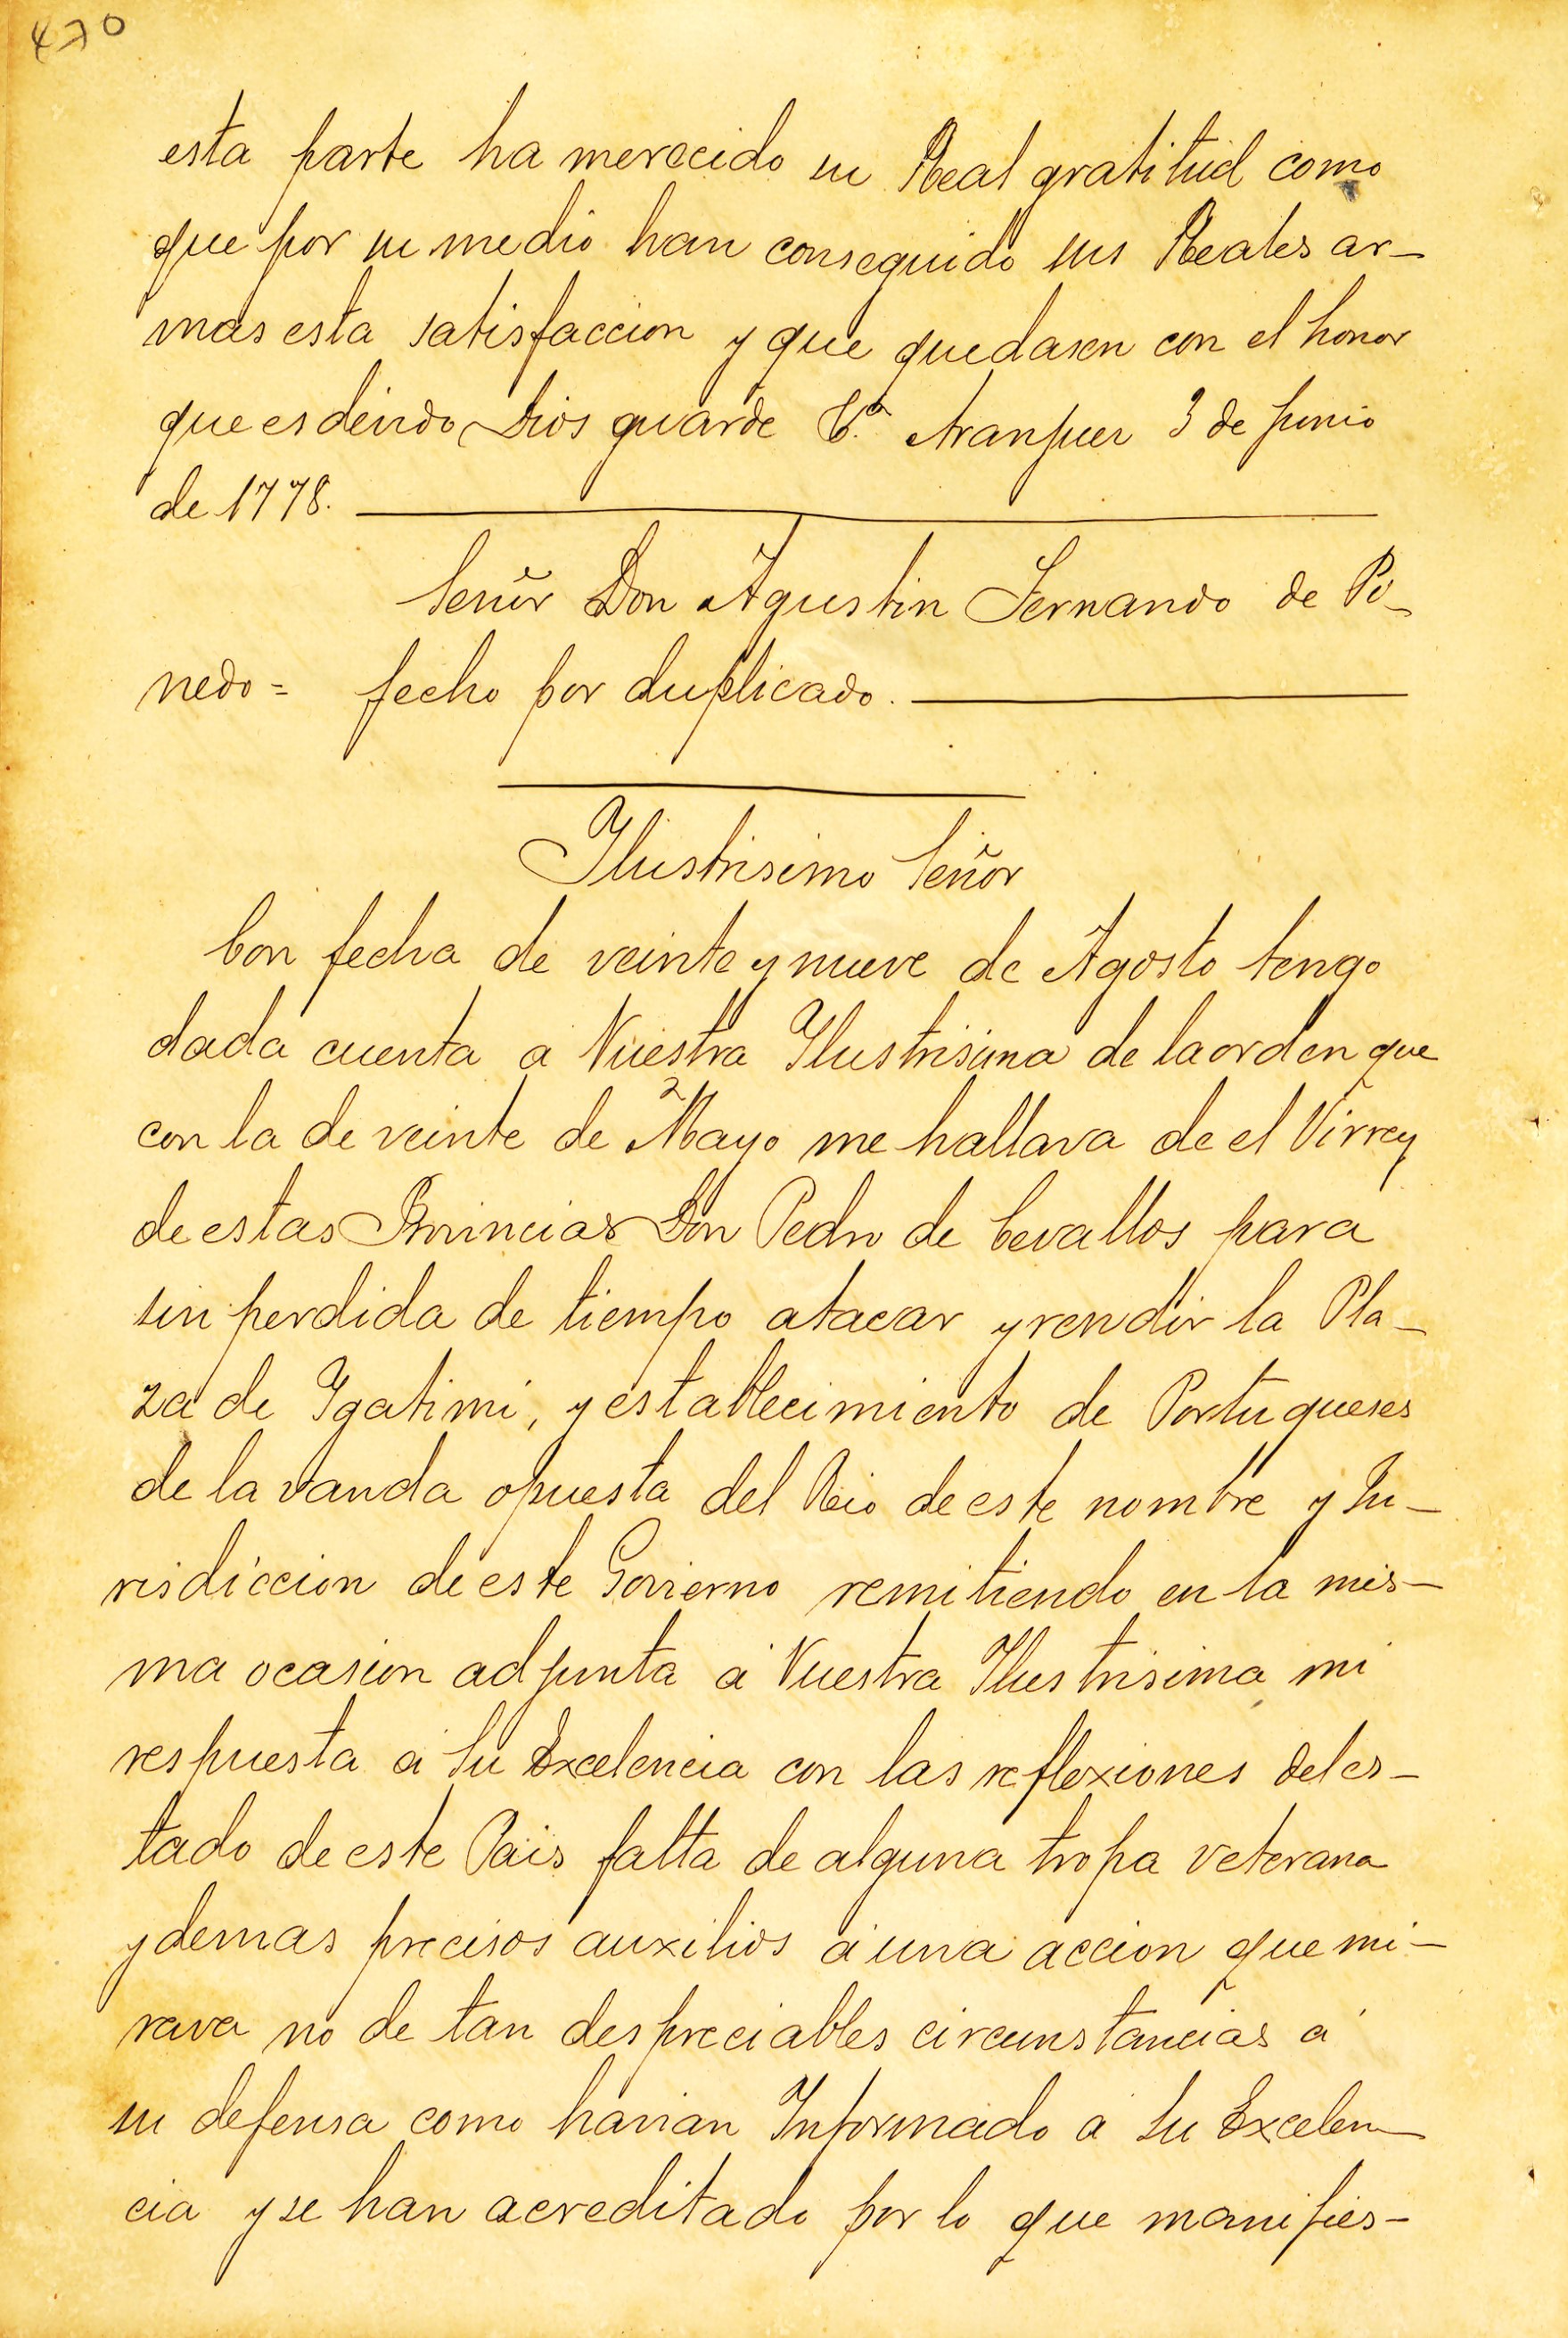 470
esta parte ha merecido su Real gratitud como
que por su medio han conseguido sus Reales ar-
mas esta satisfaccion y que quedasen con el honor
que es devido Dios guarde V.ª Aranjuez 3 de junio
de 1778.
Señor Don Agustin Fernando de Pi-
nedo = fecho por duplicado.
Ilustrisimo Señor
Con fecha de veinte y nueve de Agosto tengo
dada cuenta a Vuestra Ilustrisima de la orden que
con la de veinte de Mayo me hallava de el Virrey
de estas Provincias Don Pedro de Cevallos para
sin perdida de tiempo atacar y rendir la Pla-
za de Ygatimi, y establecimiento de Portugueses
de la vanda opuesta del Rio de este nombre y Ju-
risdiccion de este Govierno remitiendo en la mis-
ma ocasion adjunta a Vuestra Ilustrisima mi
respuesta a Su Excelencia con las reflexiones del es-
tado de este Pais falta de alguna tropa veterana
y demas precisos auxilios a una accion que mi-
rava no de tan despreciables circunstancias a
su defensa como havian Informado a Su Excelen-
cia y se han acreditado por lo que manifies-